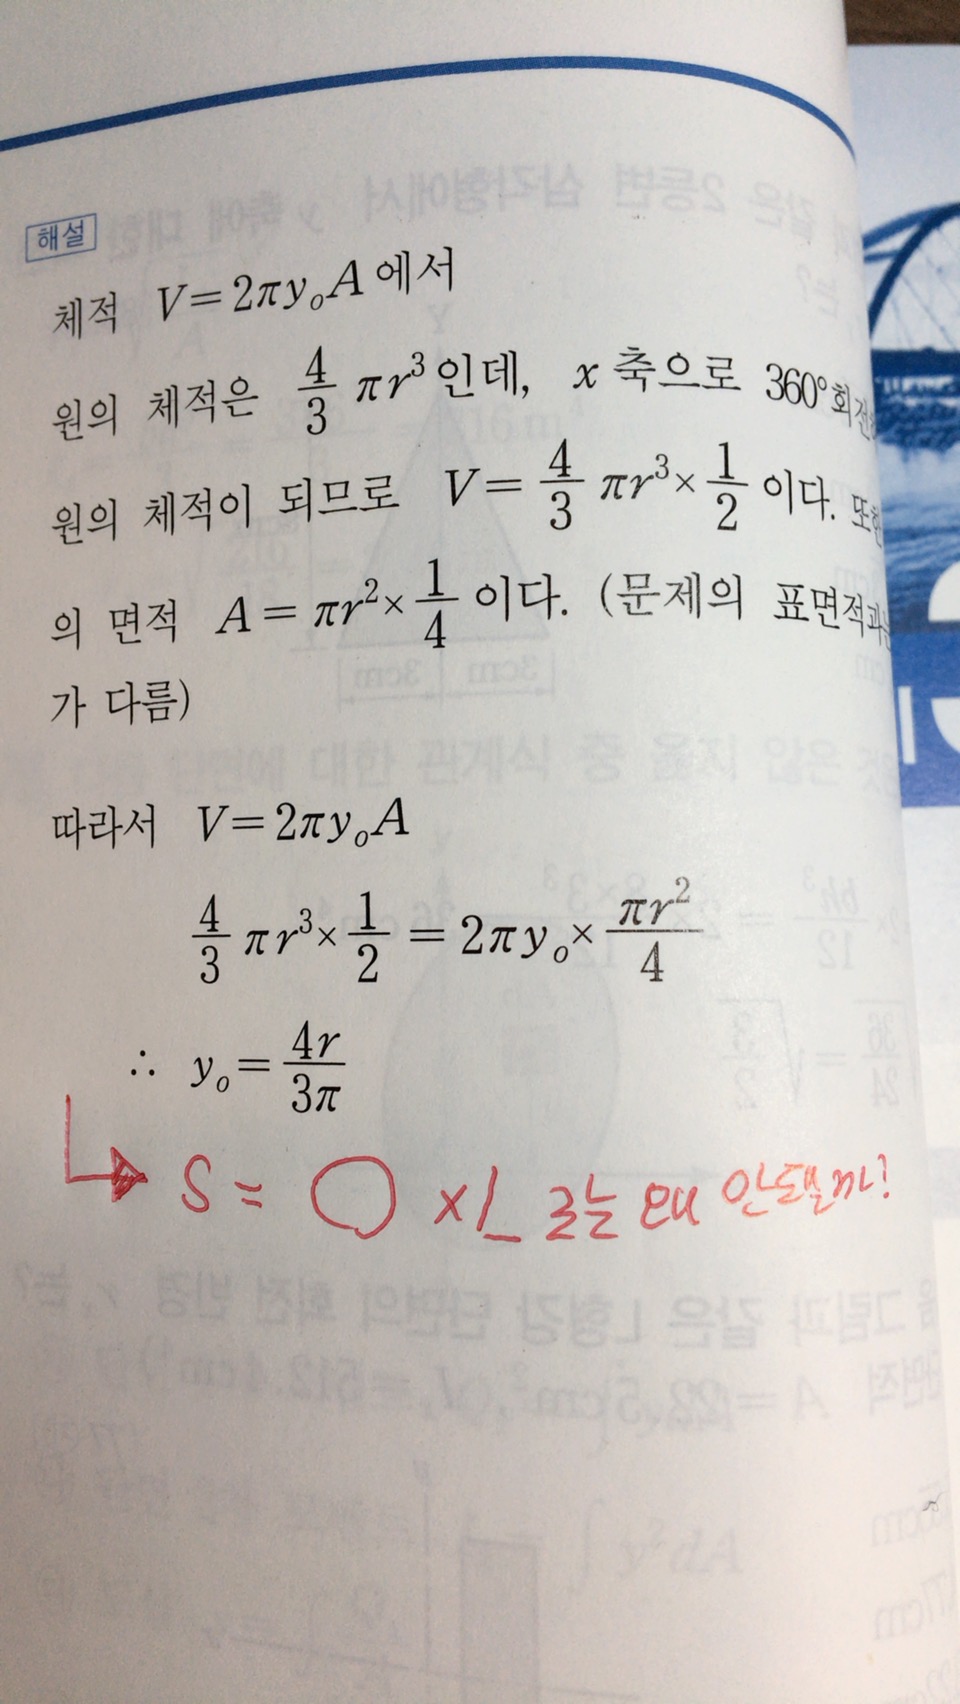 해설
체적 V=2πy₀A 에서
원의 체적은 4/3 πr³인데, x축으로 360°회전
원의 체적이 되므로 V=4/3 πr³×1/2 이다. 또한
의 면적 A=πr²×1/4 이다. (문제의 표면적과는
가 다름)
따라서 V=2πy₀A
4/3 πr³×1/2=2πy₀×πr²/4
∴ y₀=4r/3π
S = ○ × 로는 왜 안될까?